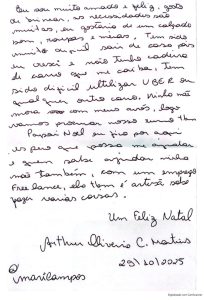 Eu sou muito amado e feliz, gosto
de brincar, as necessidades são
muitas, eu gostaria de um calçado
bom, roupas e meias. Tem sido
muito difícil sair de casa pois
eu cresci e não tenho cadeira
de carro que me caiba, tem
sido difícil ultilizar UBER ou
qualquer outro carro. Minha mãe
mora com meus avós, logo
vamos precisar nosso
Papai Noel eu fico por aqui
espero que possa me ajudar
e quem sabe ajudar minha
mãe também, com um emprego
Freelance, ela tem é artesã sabe
fazer várias coisas.
Um Feliz Natal
Arthur Oliverio C. Martins
29/10/2025
@marilampos
Digitalizado com CamScanner